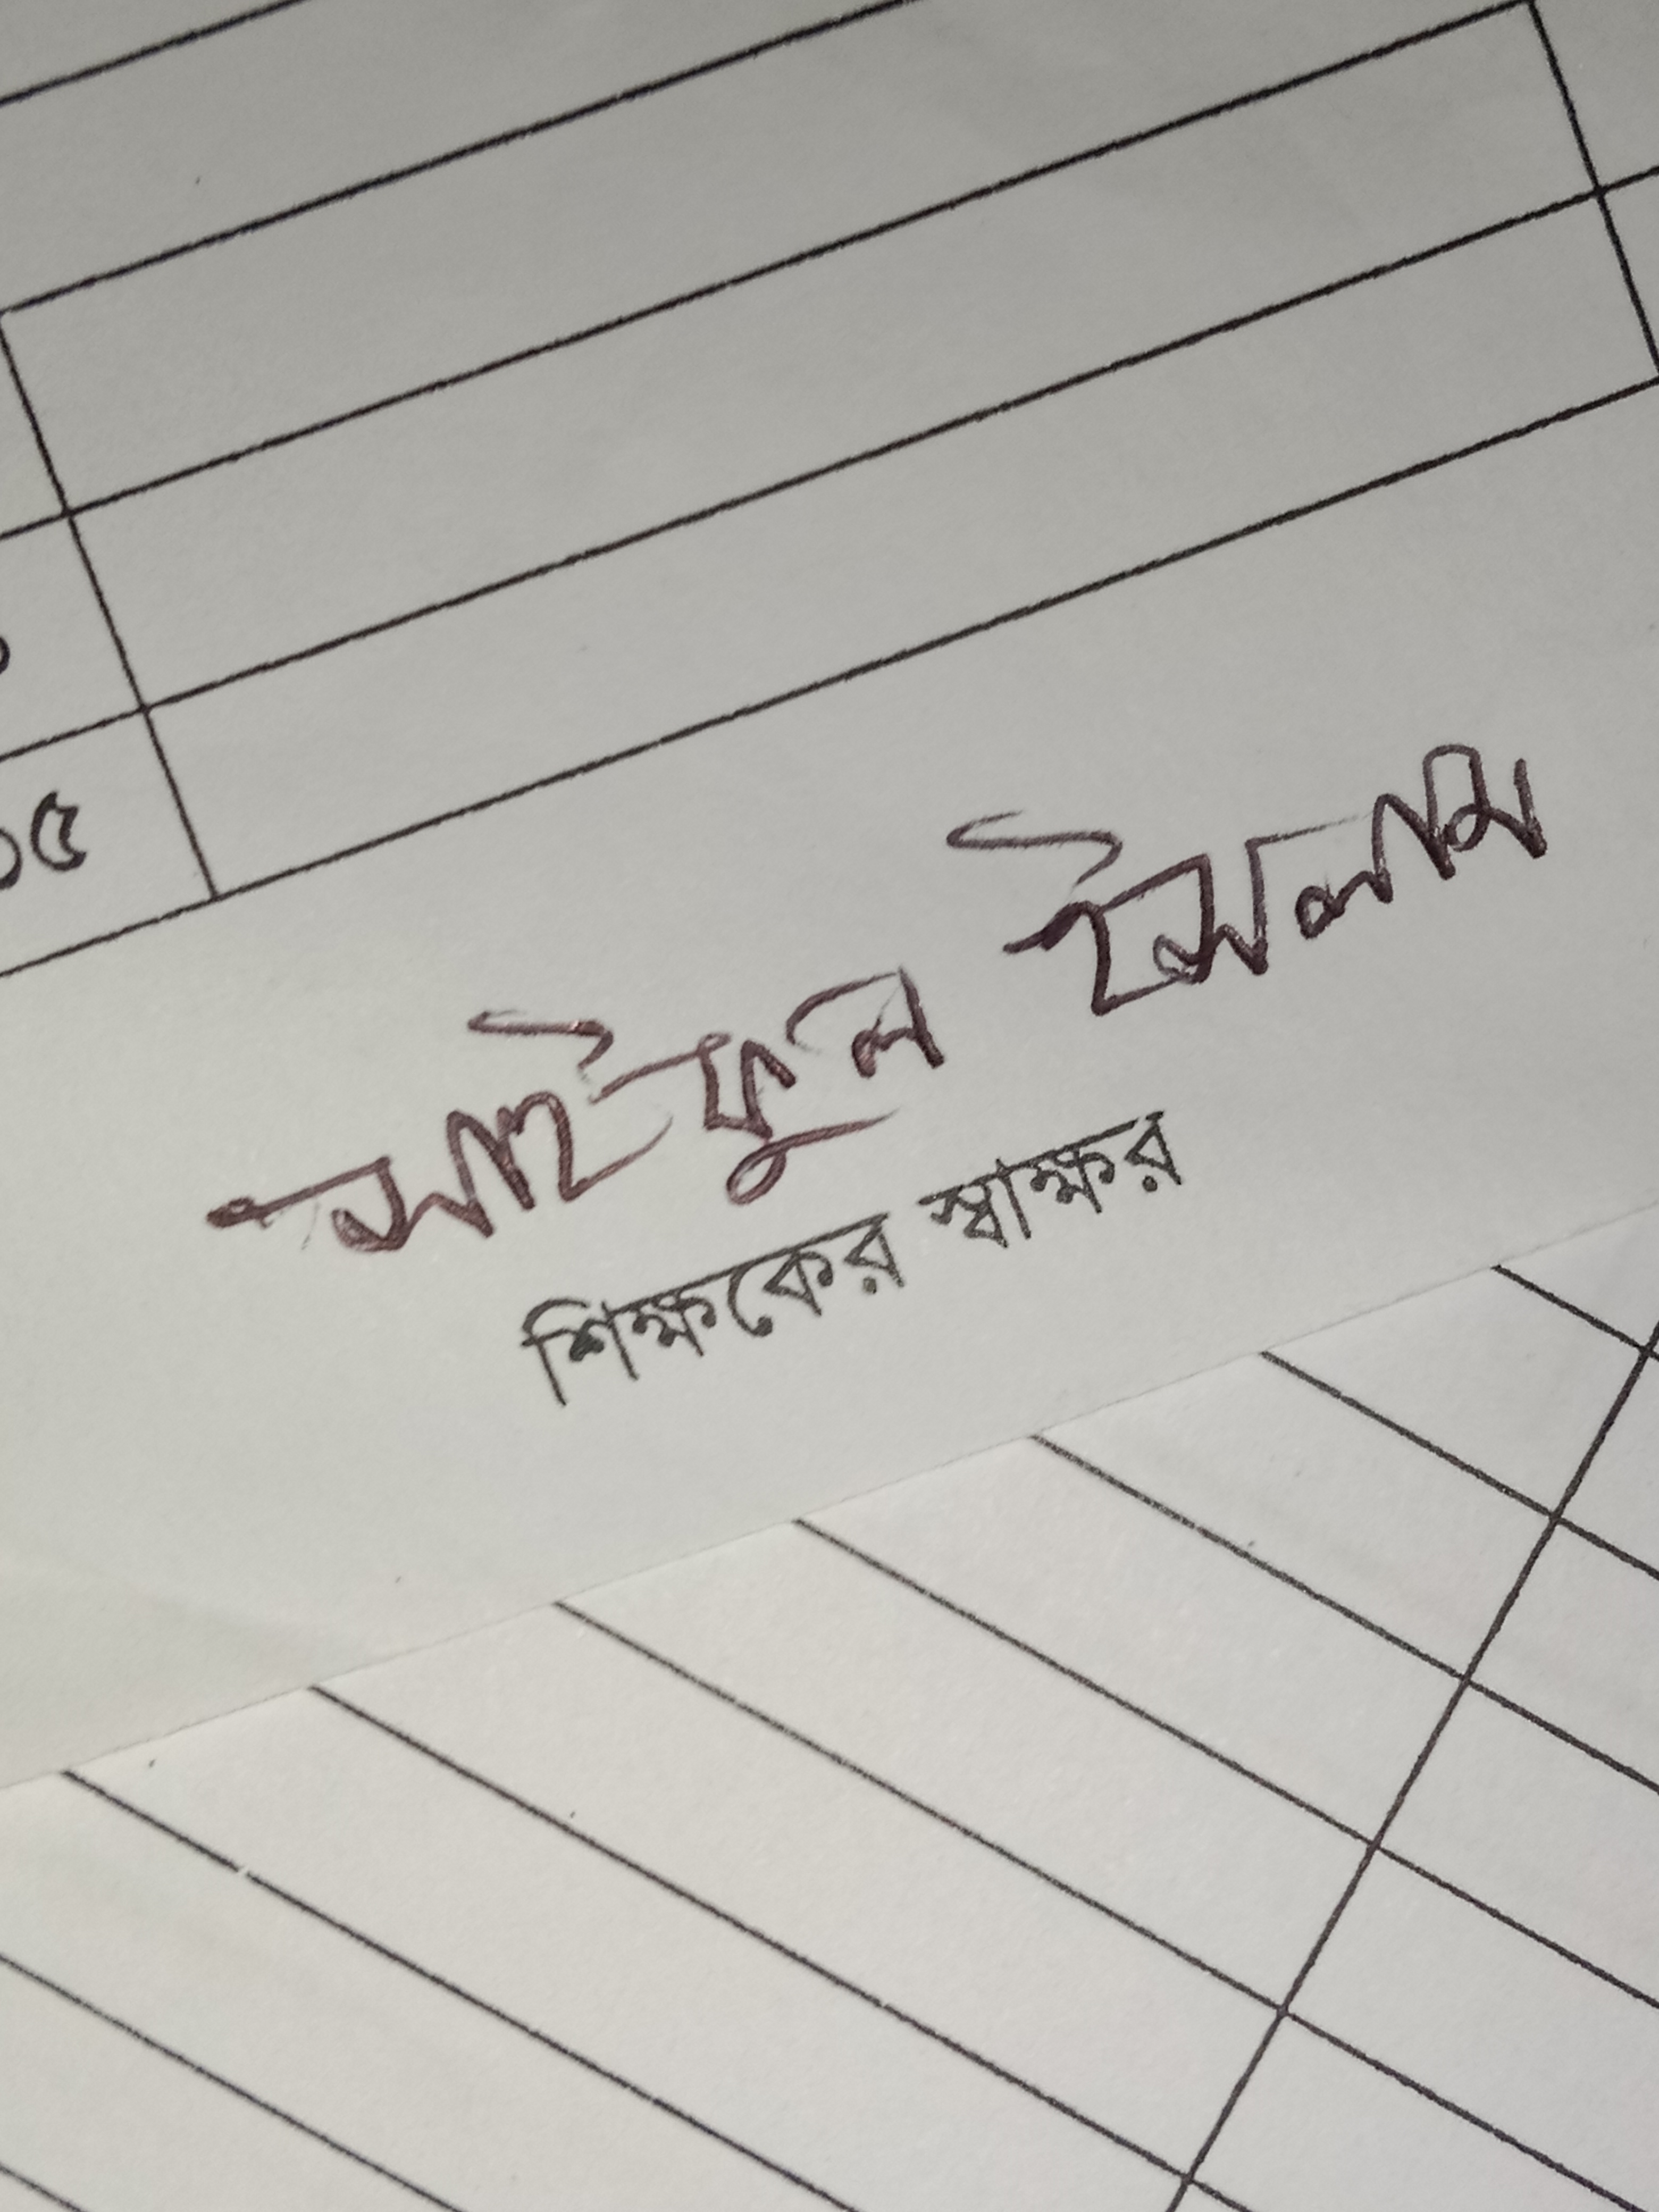 ১৫
সাইফুল ইসলাম
শিক্ষকের স্বাক্ষর